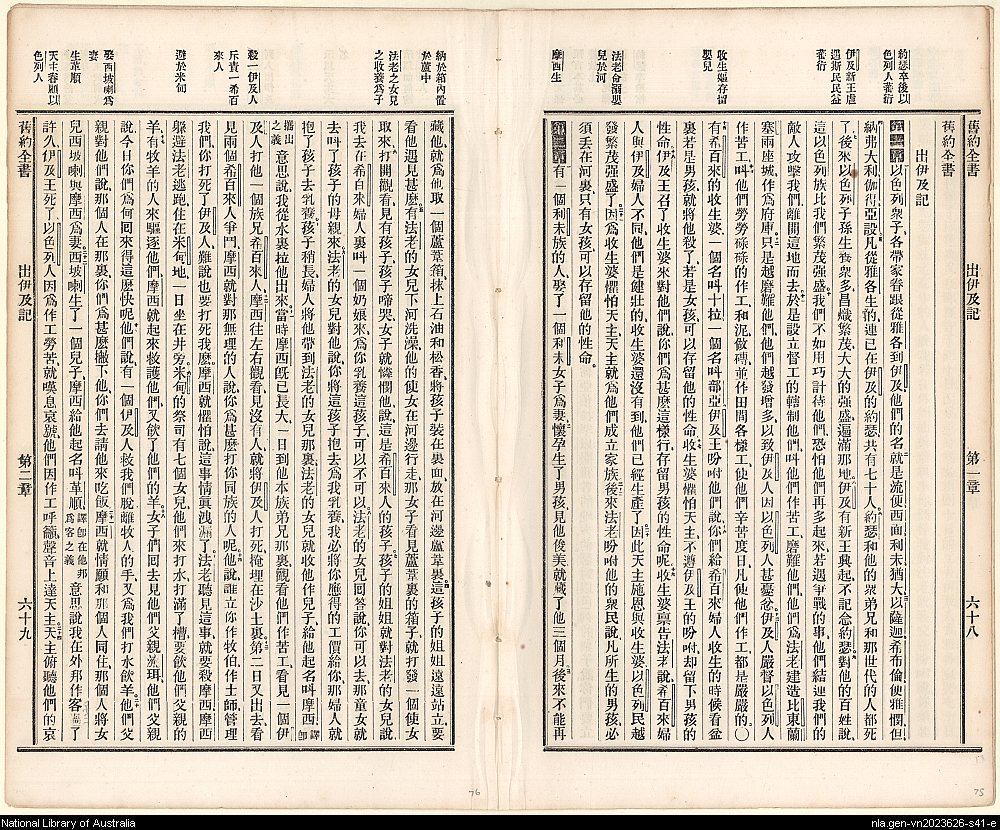 約瑟卒後以
色列人蕃衍
伊及新王虐
遇斯民民益
蕃衍
收生嫗存留
嬰兒
法老命溺嬰
兒於河
摩西生
舊約全書 出伊及記 第一章 六十八
舊約全書
出伊及記
第一章以色列衆子各帶家眷跟從雅各到伊及他們的名就是流便西面利未猶大以薩迦希布倫便雅憫但
納弗大利伽得亞設凡從雅各生的連已在伊及的約瑟共有七十人約瑟和他的衆弟兄和那世代的人都死
了後來以色列子孫生養衆多昌熾繁茂大大的強盛遍滿那地伊及有新王興起不記念約瑟對他的百姓說
這以色列族比我們繁茂強盛我們不如用巧計待他們恐怕他們再多起來若遇爭戰的事他們結連我們的
敵人攻擊我們離開這地而去於是設立督工的轄制他們叫他們作苦工磨難他們他們爲法老建造比東蘭
塞兩座城作爲府庫只是越磨難他們他們越發增多以致伊及人因以色列人甚憂忿伊及人嚴督以色列人
作苦工叫他們勞勞碌碌的作工和泥做磚並作田間各樣工使他們辛苦度日凡使他們作工都是嚴嚴的〇
有希百來的收生婆一個名叫十拉一個名叫部亞伊及王吩咐他們說你們給希百來婦人收生的時候看盆
裏若是男孩就將他殺了若是女孩可以存留他的性命收生婆懼怕天主不遵伊及王的吩咐却留下男孩的
性命伊及王召了收生婆來對他們說你們爲甚麽這樣行存留男孩的性命呢收生婆稟告法老說希百來婦
人與伊及婦人不同他們是健壯的收生婆還沒有到他們已經生產了因此天主施恩與收生婆以色列民越
發繁茂強盛了因爲收生婆懼怕天主天主就爲他們成立家族後來法老吩咐他的衆民說凡所生的男孩必
須丟在河裏只有女孩可以存留他的性命
第二章有一個利未族的人娶了一個利未女子爲妻懷孕生了男孩見他俊美就藏了他三個月後來不能再
納於箱內置
於蘆中
法老之女見
之收養爲子
殺一伊及人
斥責一希百
來人
遊於米甸
娶西坡喇爲
妻
生革順
天主眷顧以
色列人
藏他就爲他取一個蘆葦箱抹上石油和松香將孩子裝在裏面放在河邊蘆葦裏這孩子的姐姐遠遠站立要
看他遇見甚麽有法老的女兒下河洗澡他的使女在河邊行走那女子看見蘆葦裏的箱子就打發一個使女
取來打開觀看見有孩子孩子啼哭女子就憐憫他說這是希百來人的孩子孩子的姐姐就對法老的女兒說
我去在希百來婦人裏叫一個奶娘來爲你乳養這孩子可以不可以法老的女兒回答說你可以去那童女就
去叫了孩子的母親來法老的女兒對他說你將這孩子抱去爲我乳養我必將你應得的工價給你那婦人就
抱了孩子去乳養孩子稍長婦人將他帶到法老的女兒那裏法老的女兒就收他作兒子給他起名叫摩西譯即
攜出之義意思說我從水裏拉他出來當時摩西旣已長大一日到他本族弟兄那裏觀看他們作苦工看見一個伊
及人打他一個族兄希百來人摩西往左右觀看見沒有人就將伊及人打死掩埋在沙土裏第二日又出去看
見兩個希百來人爭鬥摩西就對那無理的人說你爲甚麽打你同族的人呢他說誰立你作牧伯作士師管理
我們你打死了伊及人難說也要打死我麽摩西就懼怕說這事情眞洩漏了法老聽見這事就要殺摩西摩西
躲避法老逃跑住在米甸地一日坐在井旁米甸的祭司有七個女兒他們來打水打滿了槽要飲他們父親的
羊有牧羊的人來驅逐他們摩西就起來救護他們又飲了他們的羊女子們囘去見他們父親流珥他們父親
說今日你們爲何囘來得這麽快呢他們說有一個伊及人救我們脫離牧人的手又爲我們打水飲羊他們父
親對他們說那個人在那裏你們爲甚麽撇下他你們去請他來吃飯摩西就情願和那個人同住那個人將女
兒西坡喇與摩西爲妻西坡喇生了一個兒子摩西給他起名叫革順譯即在他邦爲客之義意思說我在外邦作客過了
許久伊及王死了以色列人因爲作工勞苦就嘆息哀號他們因作工呼籲聲音上達天主天主俯聽他們的哀
舊約全書 出伊及記 第二章 六十九
76
75
National Library of Australia
nla.gen-vn2023626-s41-e